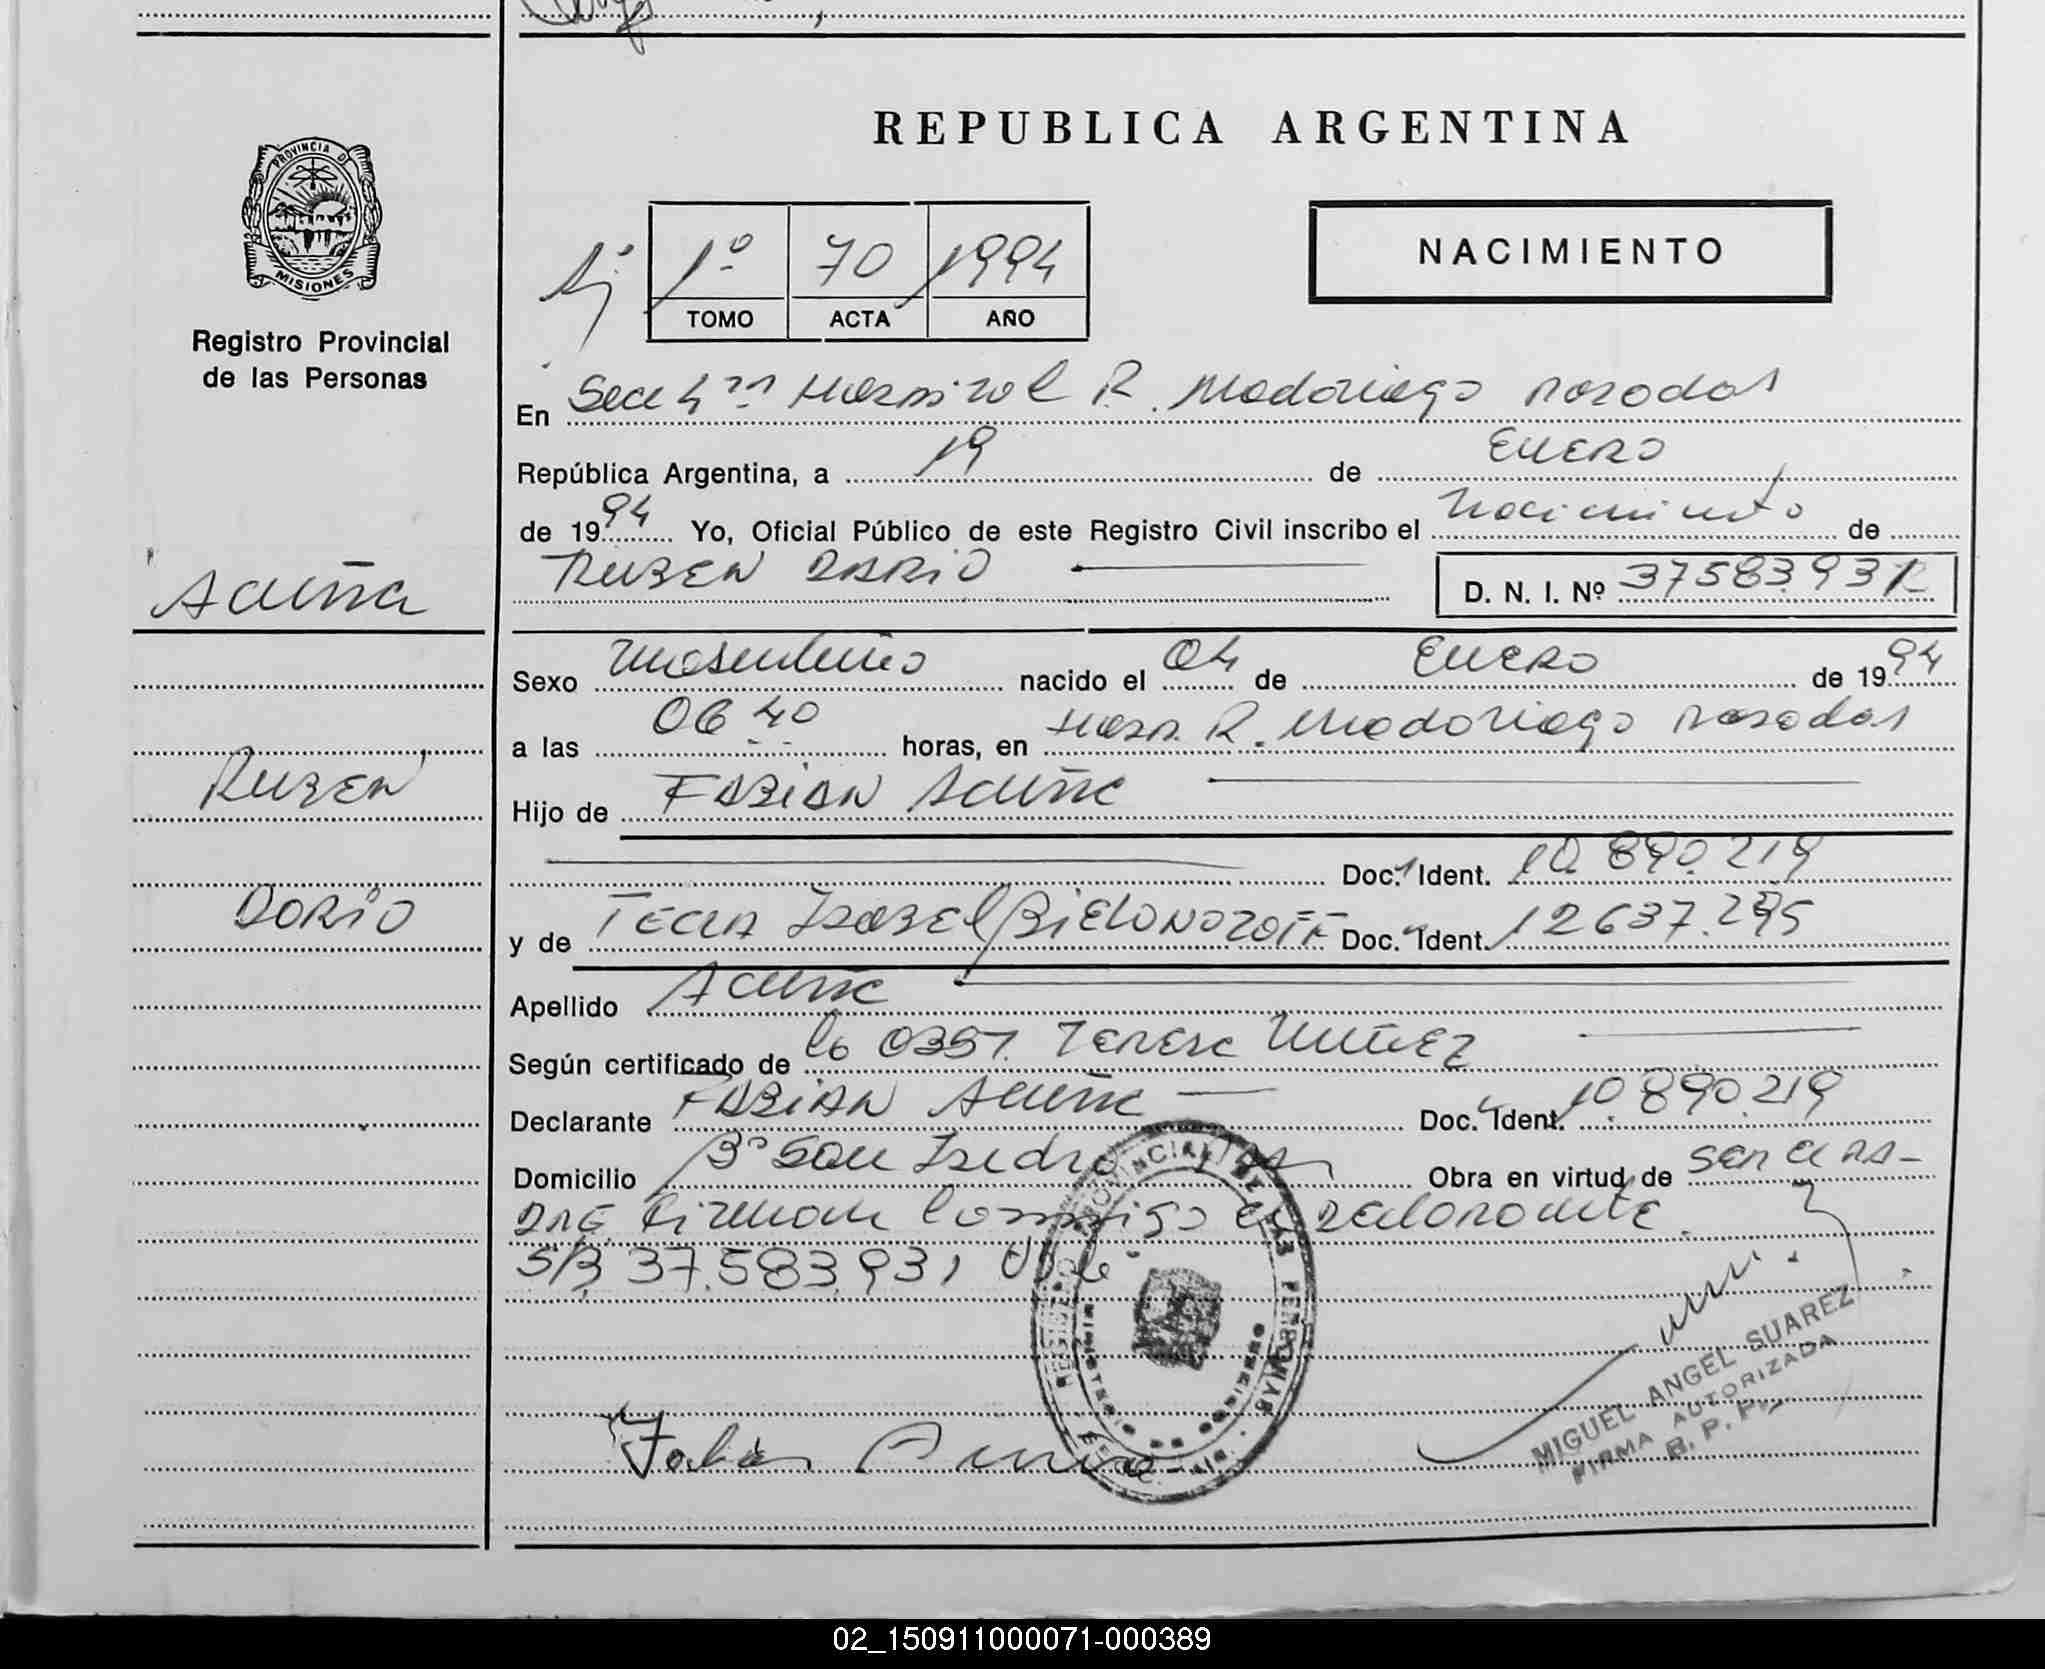 REPUBLICA ARGENTINA
PROVINCIA DE
MISIONES
Registro Provincial
de las Personas
1º 70 1994
TOMO ACTA AÑO
NACIMIENTO
En Secc 4ta Hospital R. Madariaga Posadas
República Argentina, a 19 de ENERO
de 1994 Yo, Oficial Público de este Registro Civil inscribo el Nacimiento de
RUBEN DARIO
D. N. I. Nº 37583.931
Acuña
RUBEN
DARIO
Sexo Masculino nacido el 04 de ENERO de 1994
a las 06 40 horas, en Hosp. R. Madariaga Posadas
Hijo de FABIAN Acuña
Doc. Ident. 10.890.219
y de TECLA ISABEL BIELONOZOFF Doc. Ident. 12637.295
Apellido Acuña
Según certificado de la Teresa Nuñez
Declarante FABIAN Acuña Doc. Ident. 10.890.219
Domicilio Bº San Isidro Obra en virtud de ser el PA-
DRE Firman Conmigo el Declarante.
S/B 37.583.931 Vale
Fabian Acuña
REGISTRO PROVINCIAL DE LAS PERSONAS
MIGUEL ANGEL SUAREZ
FIRMA AUTORIZADA
R. P. P.
02_150911000071-000389